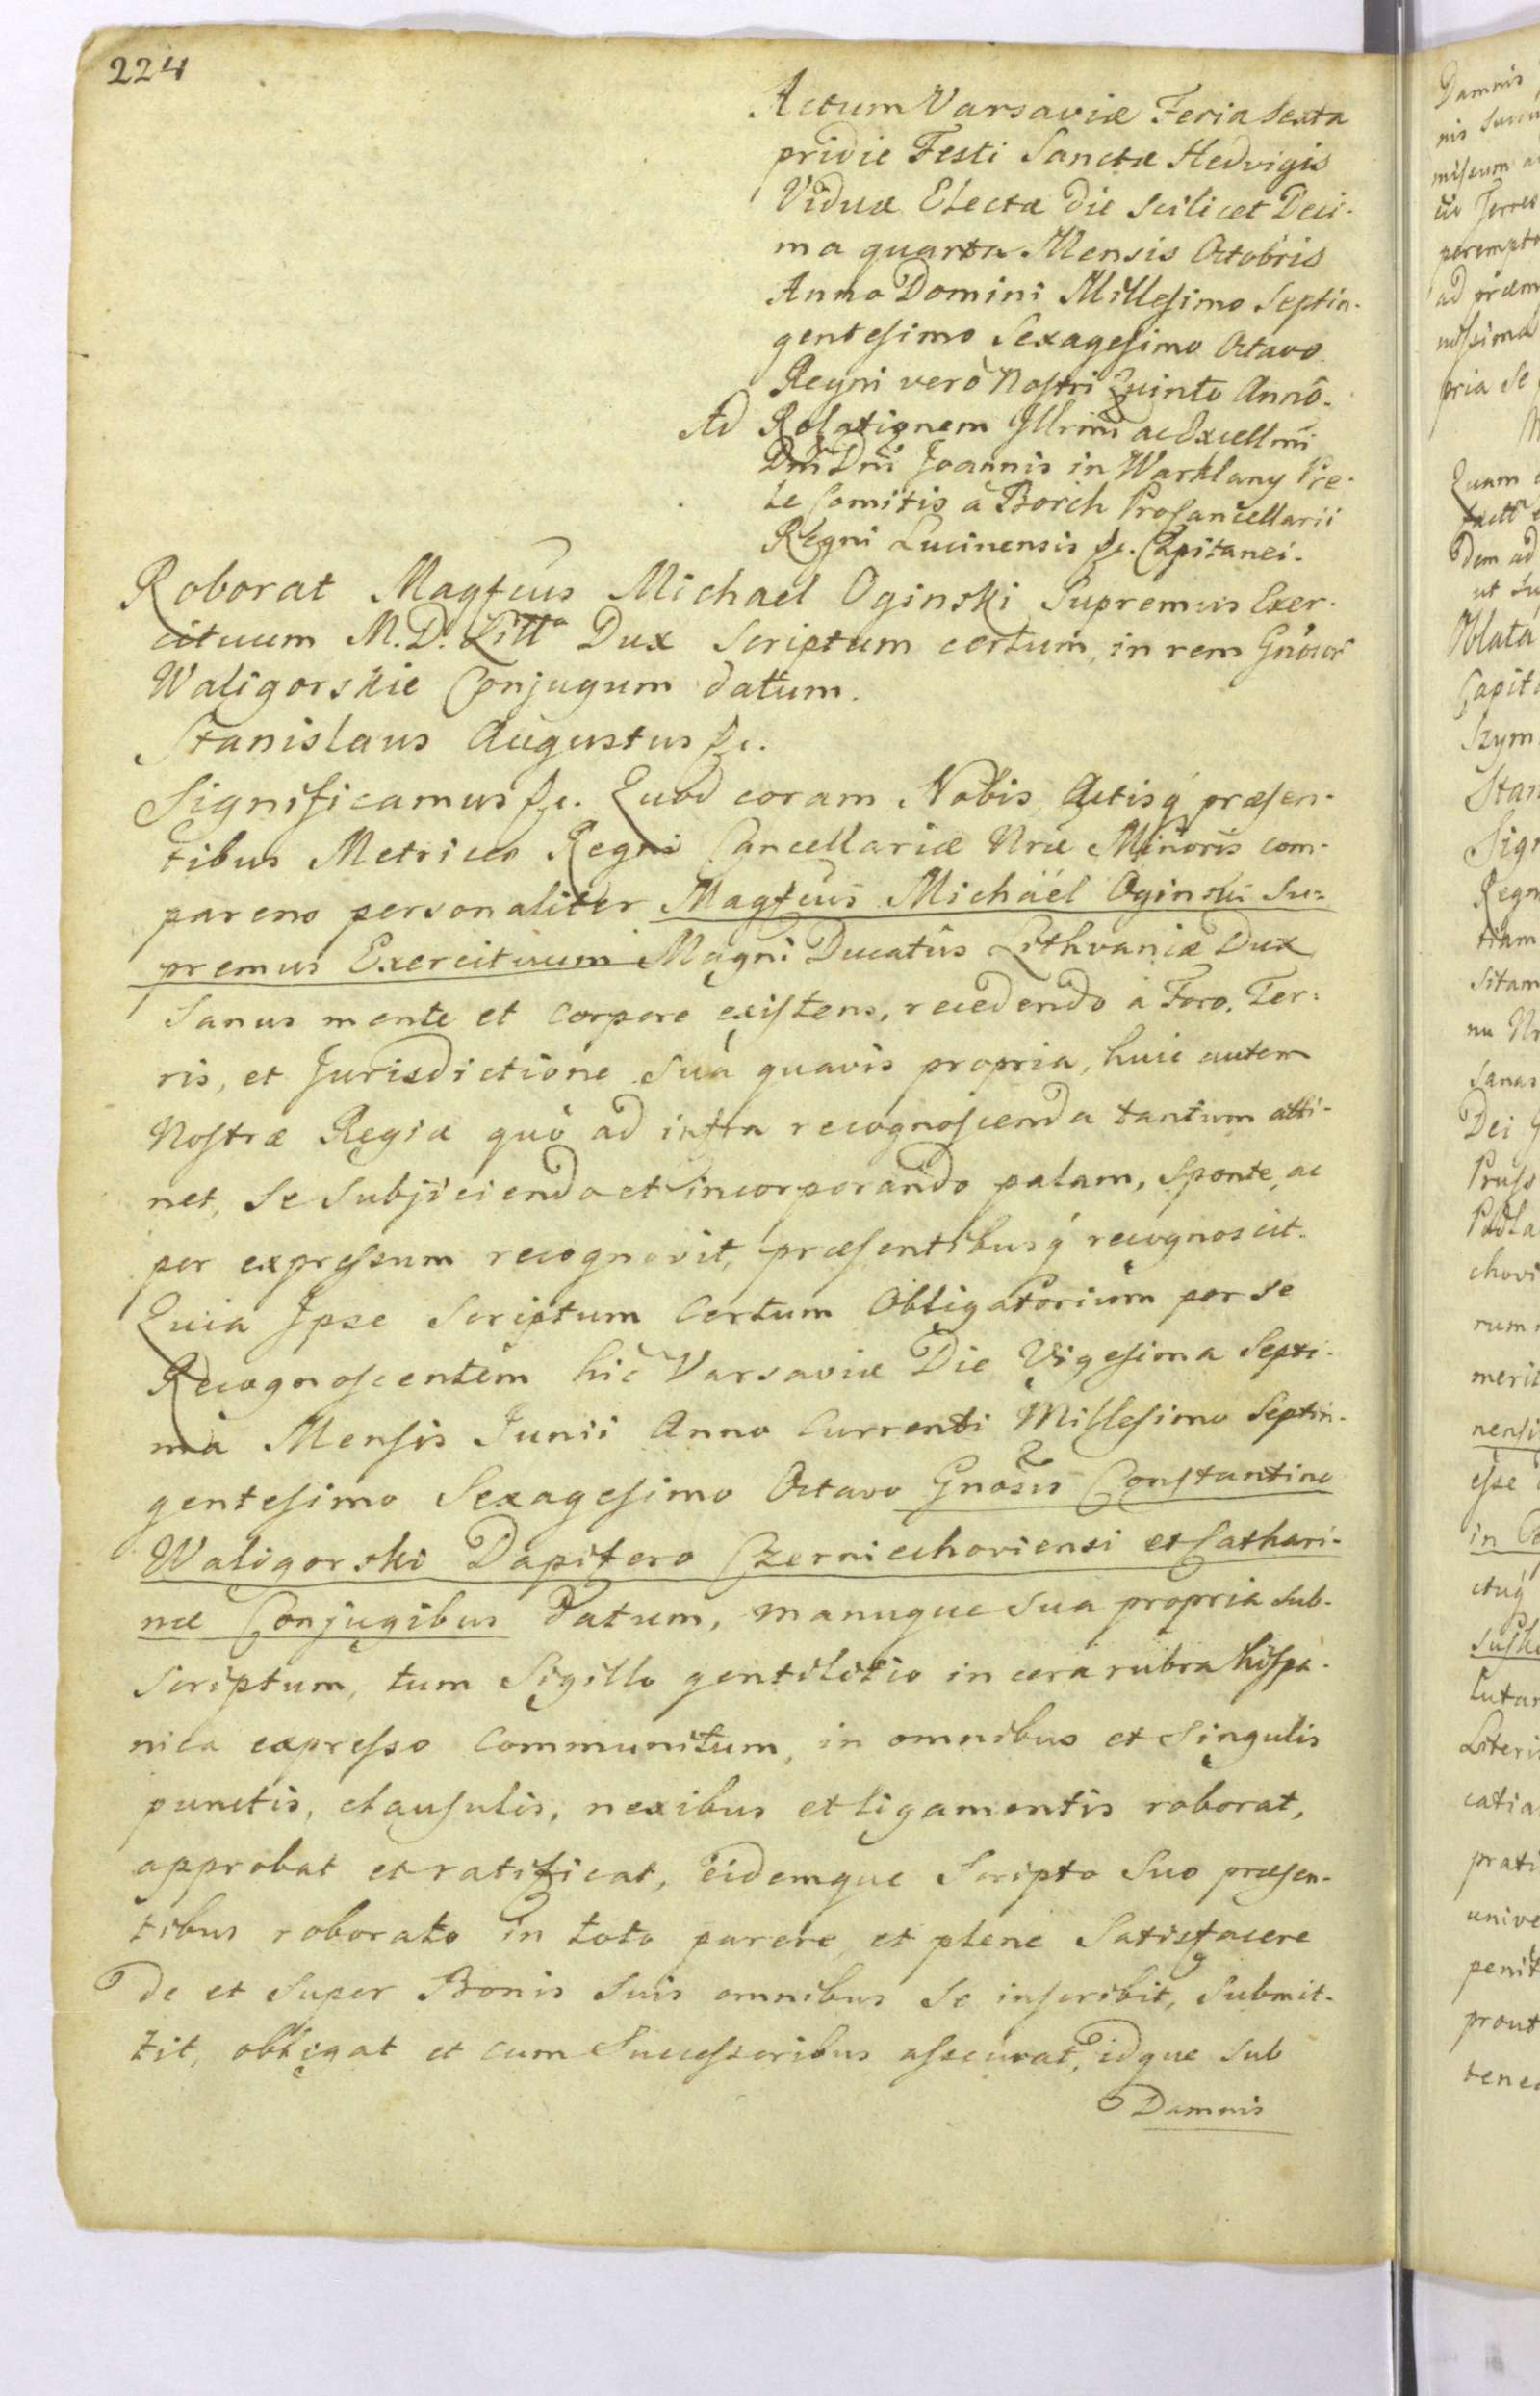 224
Actum Varsaviæ Feria Sexta
pridie Festi Sanctæ Hedvigis
Viduæ Electæ die scilicet Deci-
ma quarta Mensis Octobris
Anno Domini Millesimo Septin-
gentesimo Sexagesimo Octavo
Regni vero Nostri Quinto Anno.
Ad Relationem Illrmi ac Excellmi
Dni Dni Joannis in Warklany Pre-
le Comitis a Borch ProCancellarii
Regni Lucinensis &c. Capitanei.
Roborat Magfcus Michael Oginski Supremus Exer-
cituum M. D. Litt Dux Scriptum certum, in rem Gnosor
Waligorskie Conjugum datum.
Stanislaus Augustus &c.
Significamus &c. Quod coram Nobis Actisq́ præsen-
tibus Metrices Regni Cancellariæ Nræ Minoris com-
parens personaliter Magfcus Michäel Oginski Su-
premus Exercituum Magni Ducatûs Lithvaniæ Dux
Sanus mente et corpore existens, recedendo à Foro, Ter-
ris, et Jurisdictione suâ quavis propria, huic autem
Nostræ Regiæ quò ad infra recognoscenda tantum atti-
net, se subjiciendo et incorporando palam, sponte, ac
per expressum recognovit, præsentibusq́ recognoscit.
Quia Ipse Scriptum certum Obligatorium per se
Recognoscentem hic Varsaviæ Die Vigesima Septi-
ma Mensis Junii Anno Currenti Millesimo Septin-
gentesimo Sexagesimo Octavo Gnosis Constantino
Waligorski Dapifero Czerniechoviensi et Cathari-
næ Conjugibus datum, manuque sua propria sub-
scriptum, tum Sigillo gentilitio in cera rubra hispa-
nica expresso communitum, in omnibus et singulis
punctis, clausulis, nexibus et ligamentis roborat,
approbat et ratificat, eidemque Scripto suo præsen-
tibus roborato in toto parere et plene satisfacere
de et super Bonis suis omnibus se inscribit, submit-
tit, obligat et cum Successoribus assecurat, idque sub
Damnis